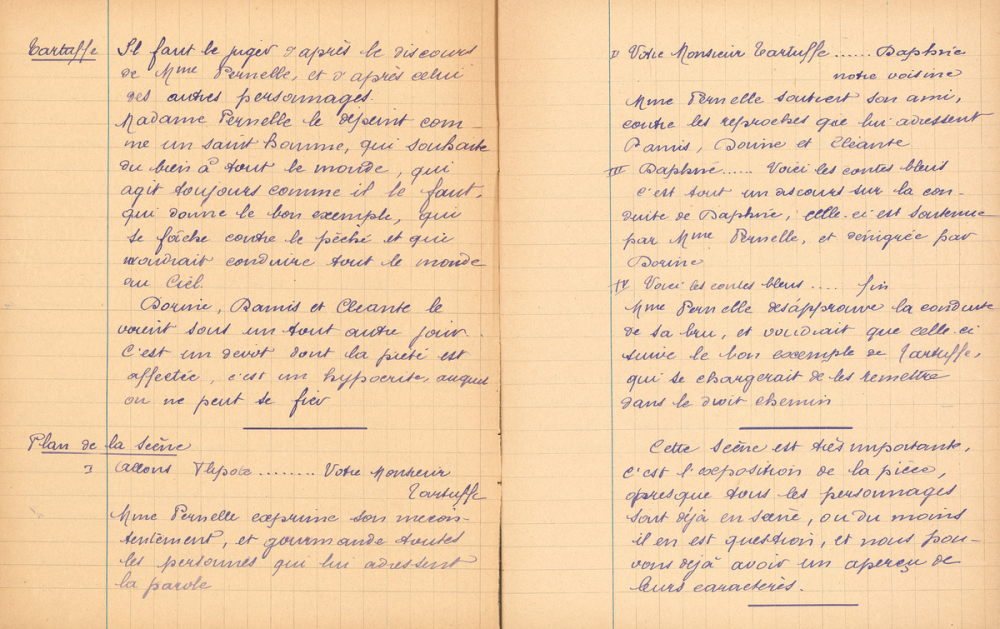 Tartuffe Il faut le juger d'après le discours
de Mme Pernelle, et d'après celui
des autres personnages.
Madame Pernelle le dépeint com-
me un saint homme, qui souhaite
du bien à tout le monde, qui
agit toujours comme il le faut,
qui donne le bon exemple, qui
se fâche contre le péché et qui
voudrait conduire tout le monde
au Ciel.
Dorine, Damis et Cléante le
voient sous un tout autre jour.
C'est un dévot dont la piété est
affectée, c'est un hypocrite, auquel
on ne peut se fier
Plan de la scène
I Allons Flipote ........ Votre Monsieur
Tartuffe
Mme Pernelle exprime son mécon-
tentement, et gourmande toutes
les personnes qui lui adressent
la parole
II Votre Monsieur Tartuffe ...... Daphné
notre voisine
Mme Pernelle soutient son ami,
contre les reproches que lui adressent
Damis, Dorine et Cléante
III Daphné ..... Voici les contes bleus
C'est tout un discours sur la con-
duite de Daphné, celle-ci est soutenue
par Mme Pernelle, et dénigrée par
Dorine
IV Voici les contes bleus .... fin
Mme Pernelle désapprouve la conduite
de sa bru, et voudrait que celle-ci
suive le bon exemple de Tartuffe,
qui se chargerait de les remettre
dans le droit chemin
Cette scène est très importante,
c'est l'exposition de la pièce,
presque tous les personnages
sont déjà en scène, ou du moins
il en est question, et nous pou-
vons déjà avoir un aperçu de
leurs caractères.